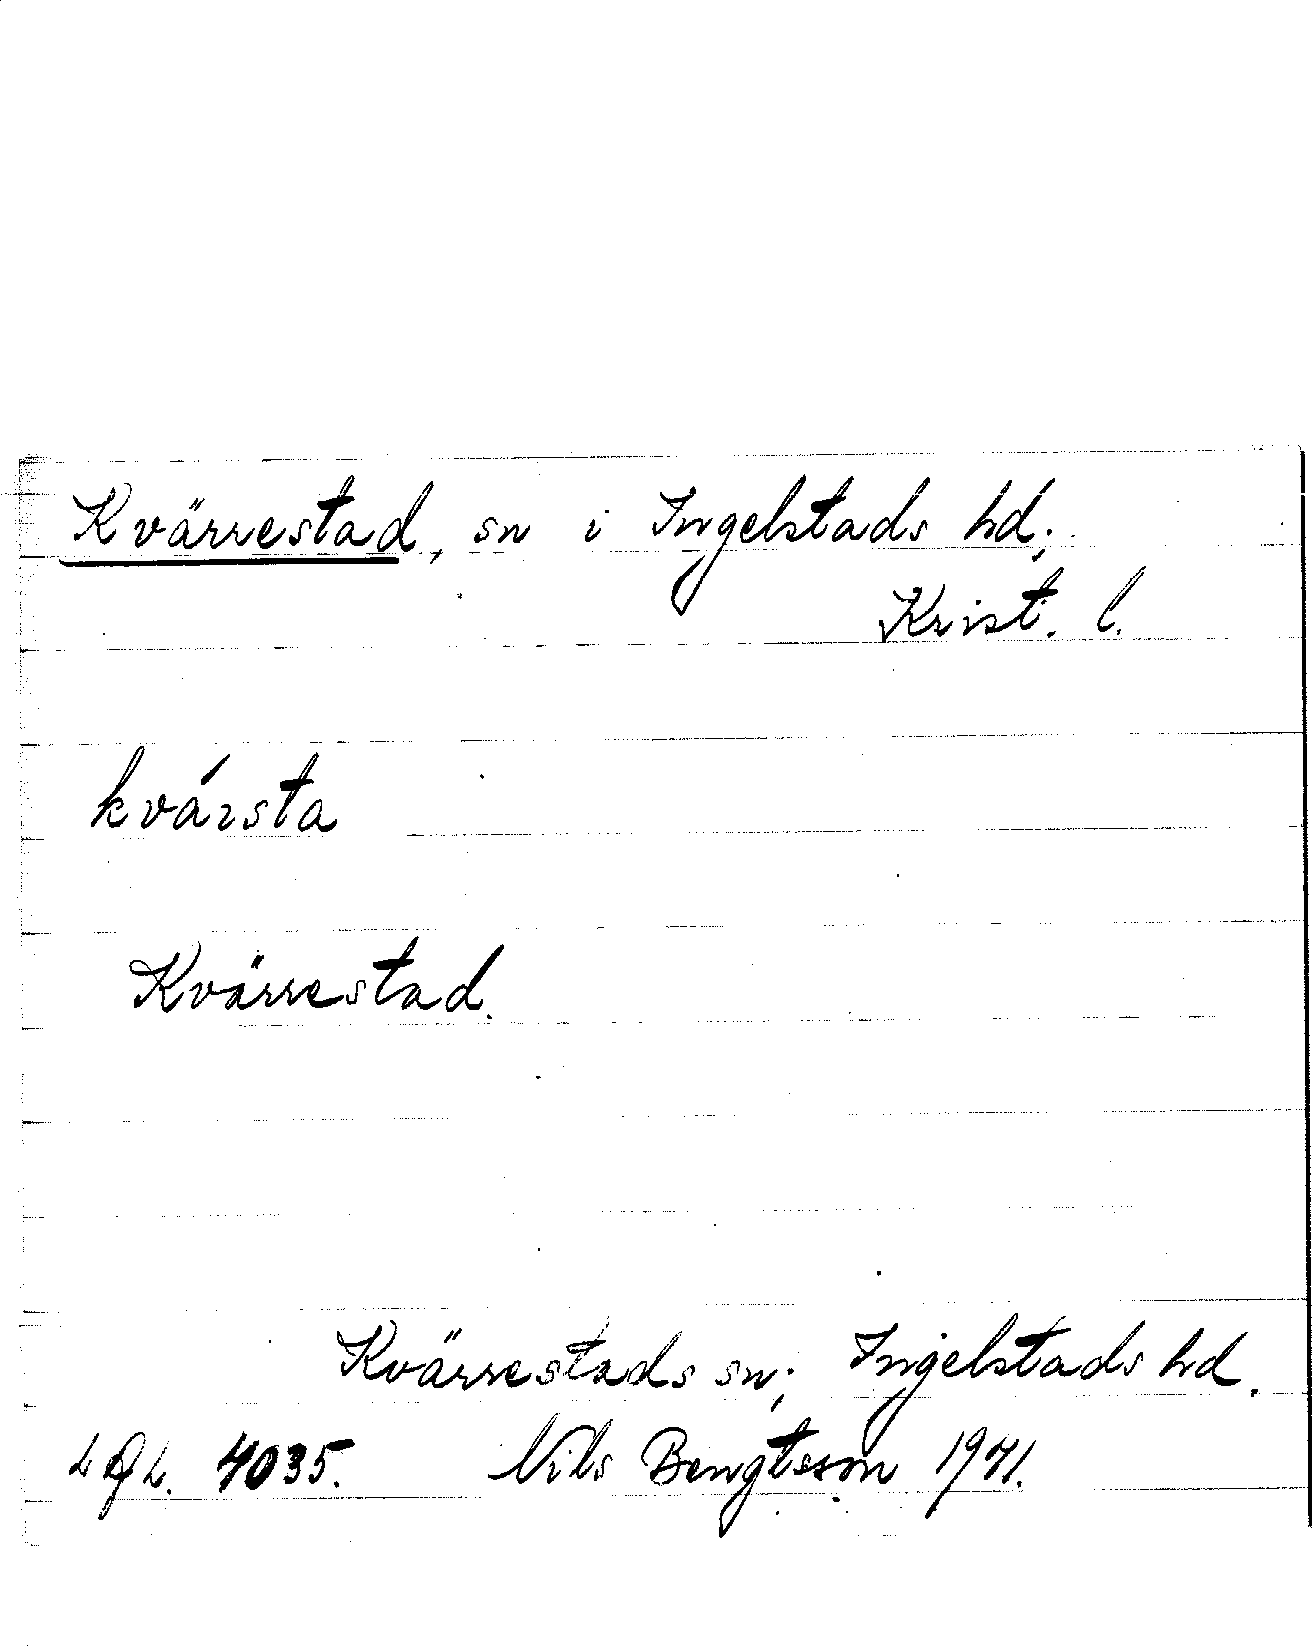 Kvärrestad, sn i Ingelstads hd;
Krist. l.
kvársta
Kvärrestad.
Kvärrestads sn; Ingelstads hd.
4035. Nils Bengtsson 1941.